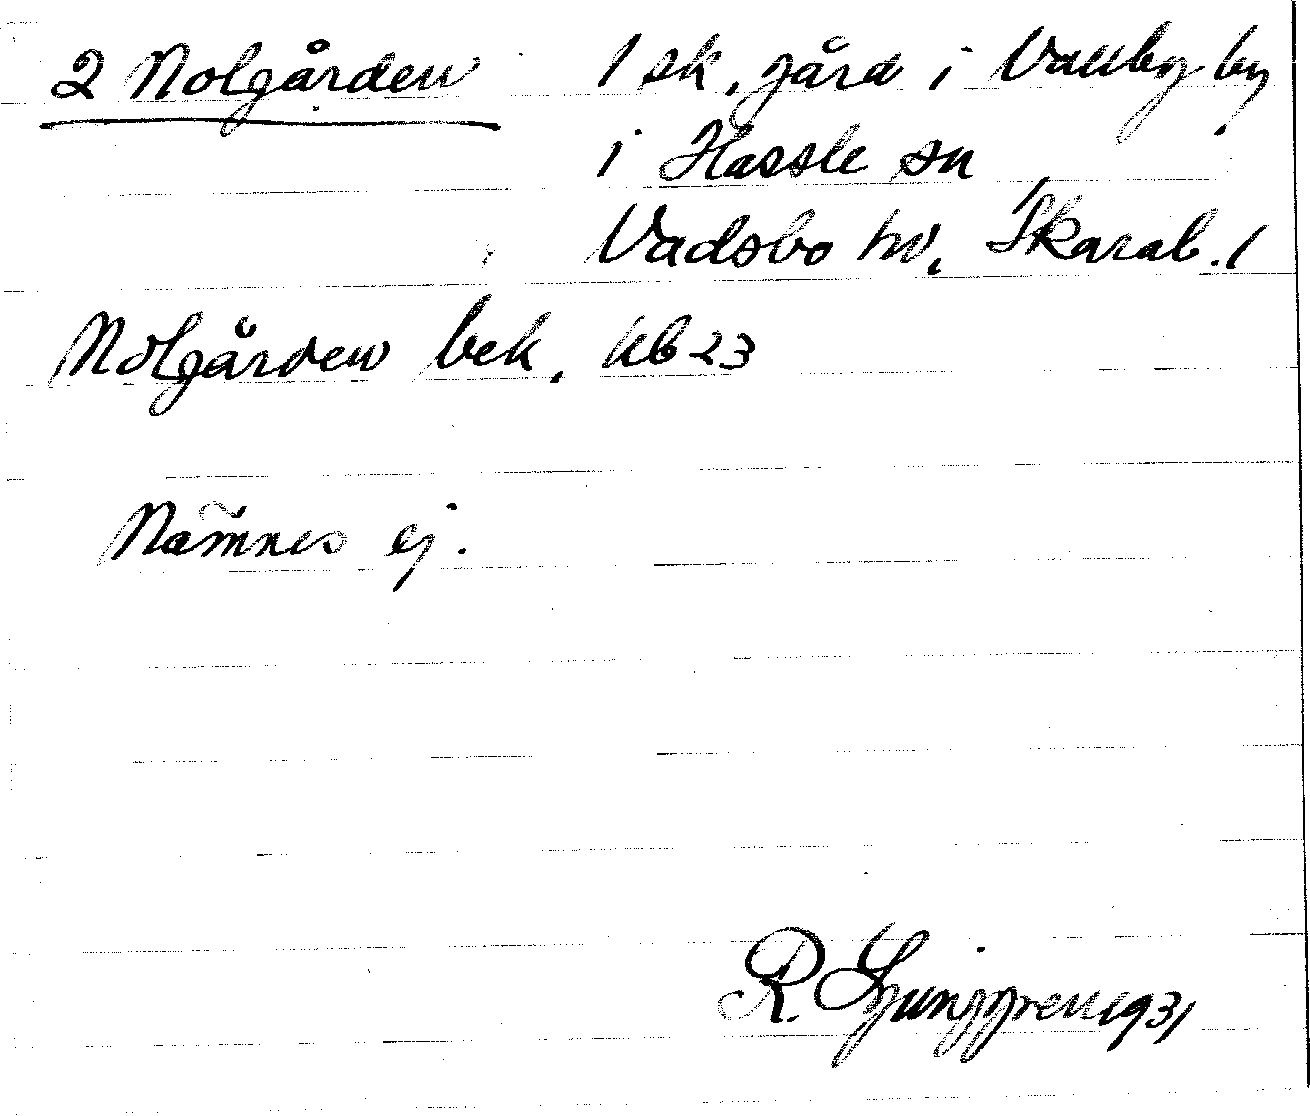 2 Nolgården 1 sk. gård i Vallby by
i Hassle sn
Vadsbo hd, Skarab. l
Nolgården bek. kb 23
Nämnes ej.
R. Ljunggren 1931